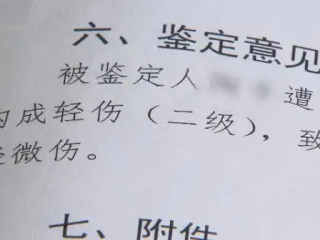 六、鉴定意见
被鉴定人 遭
构成轻伤（二级），致
轻微伤。
七、附件